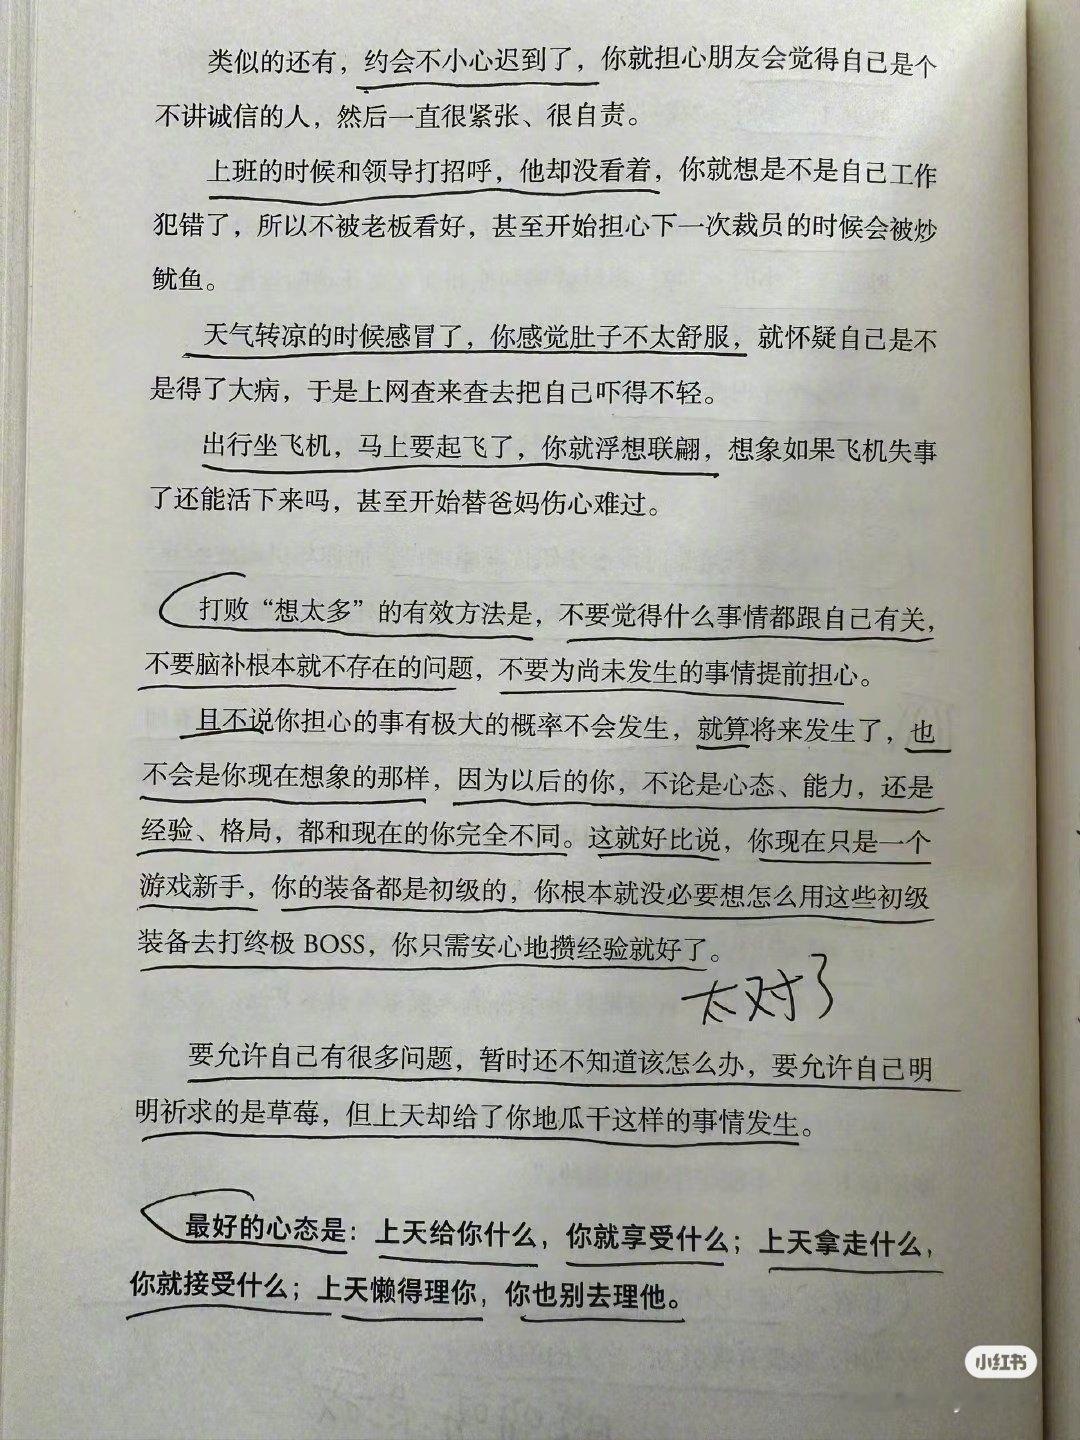 类似的还有，约会不小心迟到了，你就担心朋友会觉得自己是个
不讲诚信的人，然后一直很紧张、很自责。
上班的时候和领导打招呼，他却没看着，你就想是不是自己工作
犯错了，所以不被老板看好，甚至开始担心下一次裁员的时候会被炒
鱿鱼。
天气转凉的时候感冒了，你感觉肚子不太舒服，就怀疑自己是不
是得了大病，于是上网查来查去把自己吓得不轻。
出行坐飞机，马上要起飞了，你就浮想联翩，想象如果飞机失事
了还能活下来吗，甚至开始替爸妈伤心难过。
打败“想太多”的有效方法是，不要觉得什么事情都跟自己有关，
不要脑补根本就不存在的问题，不要为尚未发生的事情提前担心。
且不说你担心的事有极大的概率不会发生，就算将来发生了，也
不会是你现在想象的那样，因为以后的你，不论是心态、能力，还是
经验、格局，都和现在的你完全不同。这就好比说，你现在只是一个
游戏新手，你的装备都是初级的，你根本就没必要想怎么用这些初级
装备去打终极 BOSS，你只需安心地攒经验就好了。
太对了
要允许自己有很多问题，暂时还不知道该怎么办，要允许自己明
明祈求的是草莓，但上天却给了你地瓜干这样的事情发生。
最好的心态是：上天给你什么，你就享受什么；上天拿走什么，
你就接受什么；上天懒得理你，你也别去理他。
小红书